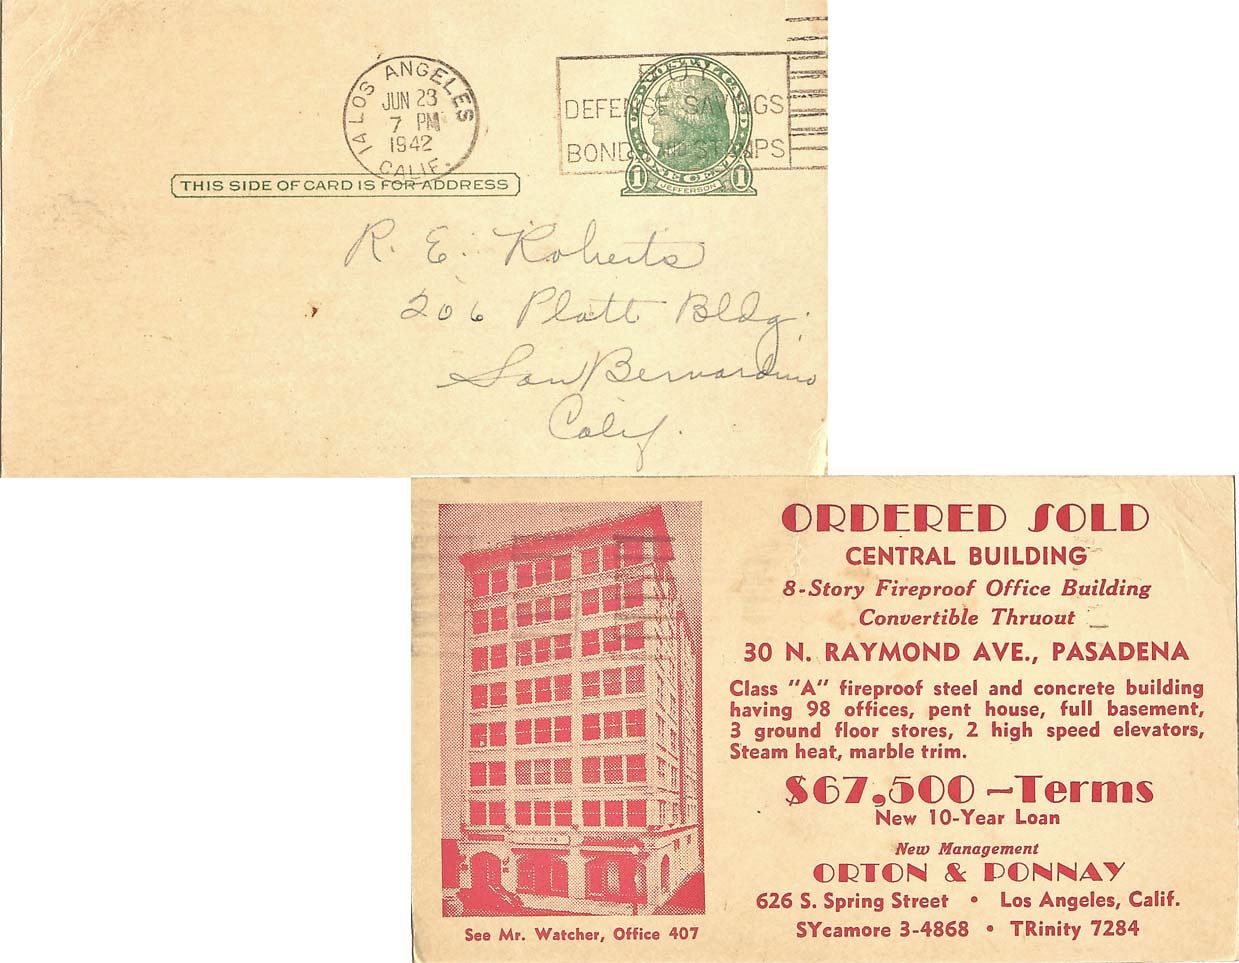 LOS ANGELES
JUN 23
7 PM
1942
CALIF.
1A
BUY
DEFENSE SAVINGS
BONDS AND STAMPS
1 JEFFERSON 1
THIS SIDE OF CARD IS FOR ADDRESS
R. E. Roberts
206 Platt Bldg.
San Bernardino
Calif.
ORDERED SOLD
CENTRAL BUILDING
8-Story Fireproof Office Building
Convertible Thruout
30 N. RAYMOND AVE., PASADENA
Class "A" fireproof steel and concrete building
having 98 offices, pent house, full basement,
3 ground floor stores, 2 high speed elevators,
Steam heat, marble trim.
$67,500 — Terms
New 10-Year Loan
New Management
ORTON & PONNAY
626 S. Spring Street • Los Angeles, Calif.
SYcamore 3-4868 • TRinity 7284
See Mr. Watcher, Office 407